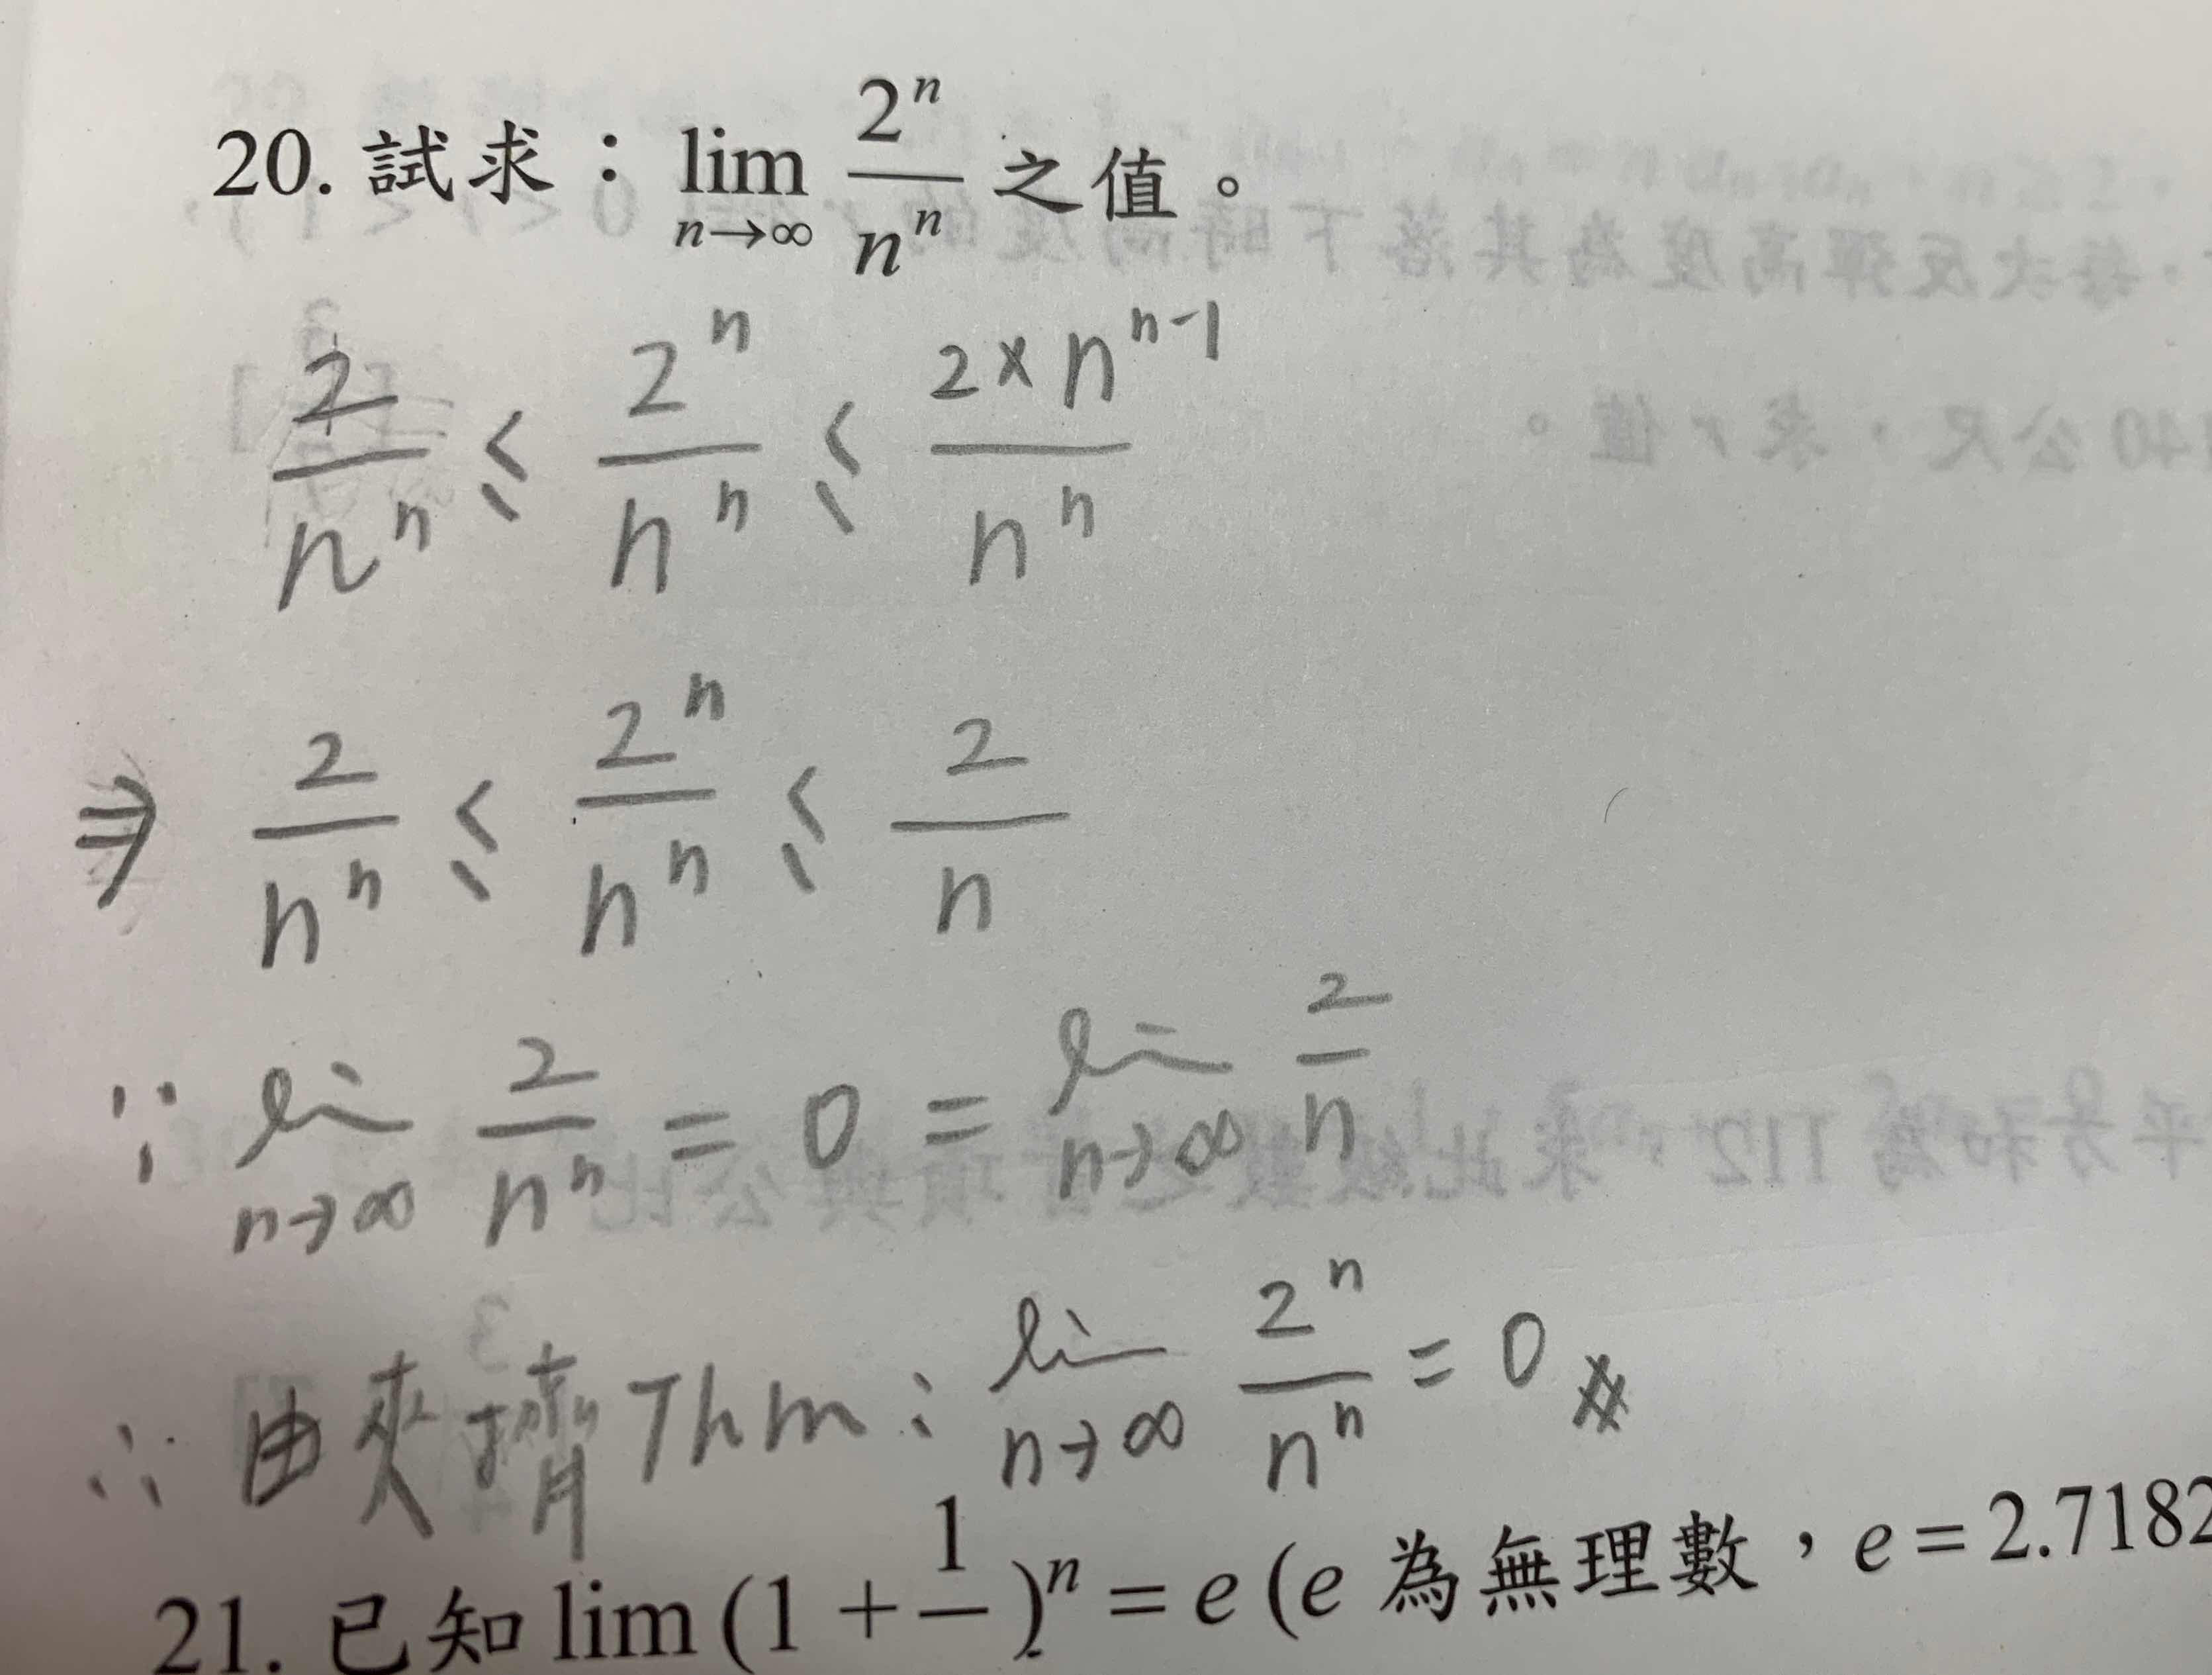 20. 試求：lim_{n→∞} 2^n/n^n 之值。
2/n^n ≤ 2^n/n^n ≤ 2×n^{n-1}/n^n
⇒ 2/n^n ≤ 2^n/n^n ≤ 2/n
∵ lim_{n→∞} 2/n^n = 0 = lim_{n→∞} 2/n
∴ 由夾擠Thm：lim_{n→∞} 2^n/n^n = 0 #
21. 已知 lim (1 + 1/ )^n = e (e 為無理數，e = 2.7182